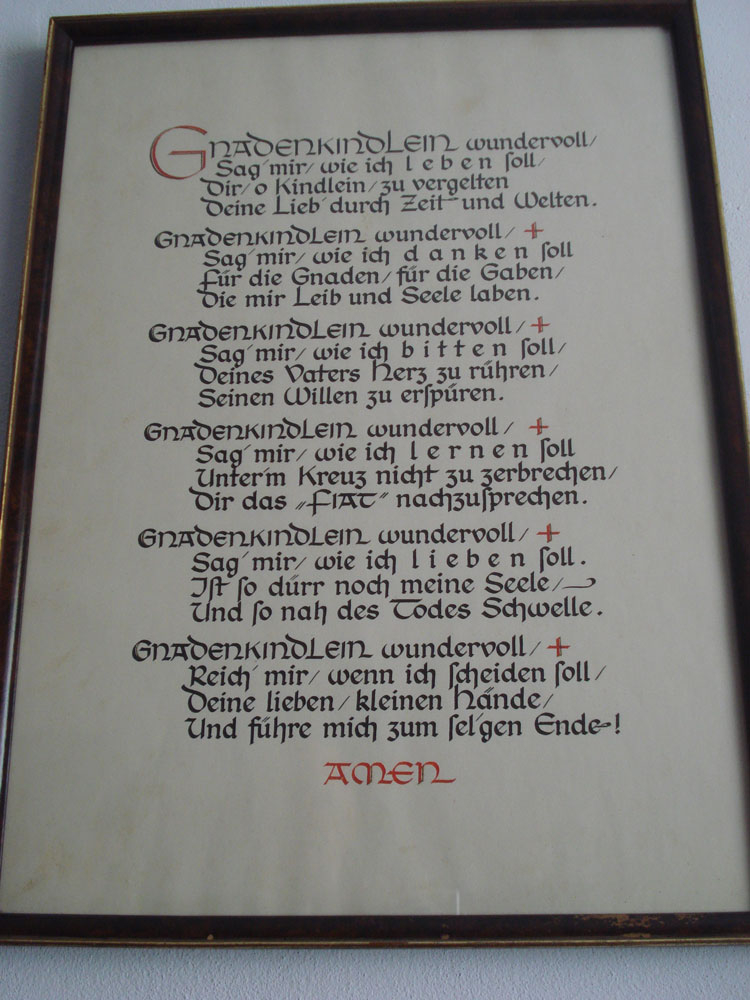 GNADENKINDLEIN wundervoll/
Sag' mir/ wie ich l e b e n ſoll/
Dir/ o Kindlein/ zu vergelten
Deine Lieb' durch Zeit und Welten.
GNADENKINDLEIN wundervoll/ +
Sag' mir/ wie ich d a n k e n ſoll
Für die Gnaden/ für die Gaben/
Die mir Leib und Seele laben.
GNADENKINDLEIN wundervoll/ +
Sag' mir/ wie ich b i t t e n ſoll/
Deines Vaters Herz zu rühren/
Seinen Willen zu erſpüren.
GNADENKINDLEIN wundervoll/ +
Sag' mir/ wie ich l e r n e n ſoll
Unter'm Kreuz nicht zu zerbrechen/
Dir das „FIAT“ nachzuſprechen.
GNADENKINDLEIN wundervoll/ +
Sag' mir/ wie ich l i e b e n ſoll.
Iſt ſo dürr noch meine Seele/
Und ſo nah des Todes Schwelle.
GNADENKINDLEIN wundervoll/ +
Reich' mir/ wenn ich ſcheiden ſoll/
Deine lieben/ kleinen Hände/
Und führe mich zum ſel'gen Ende!
AMEN